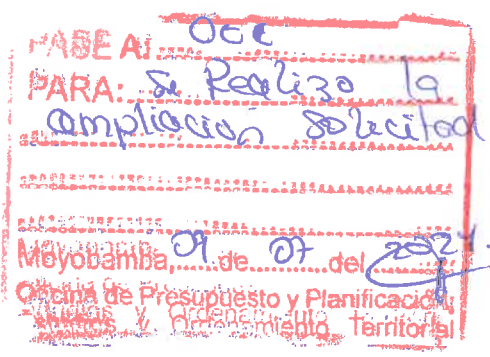 PASE A: OCC
PARA: Se Realizo la
ampliación solicitad
Moyobamba, 09 de 07 del 2024.
Oficina de Presupuesto y Planificación,
y Ordenamiento Territorial